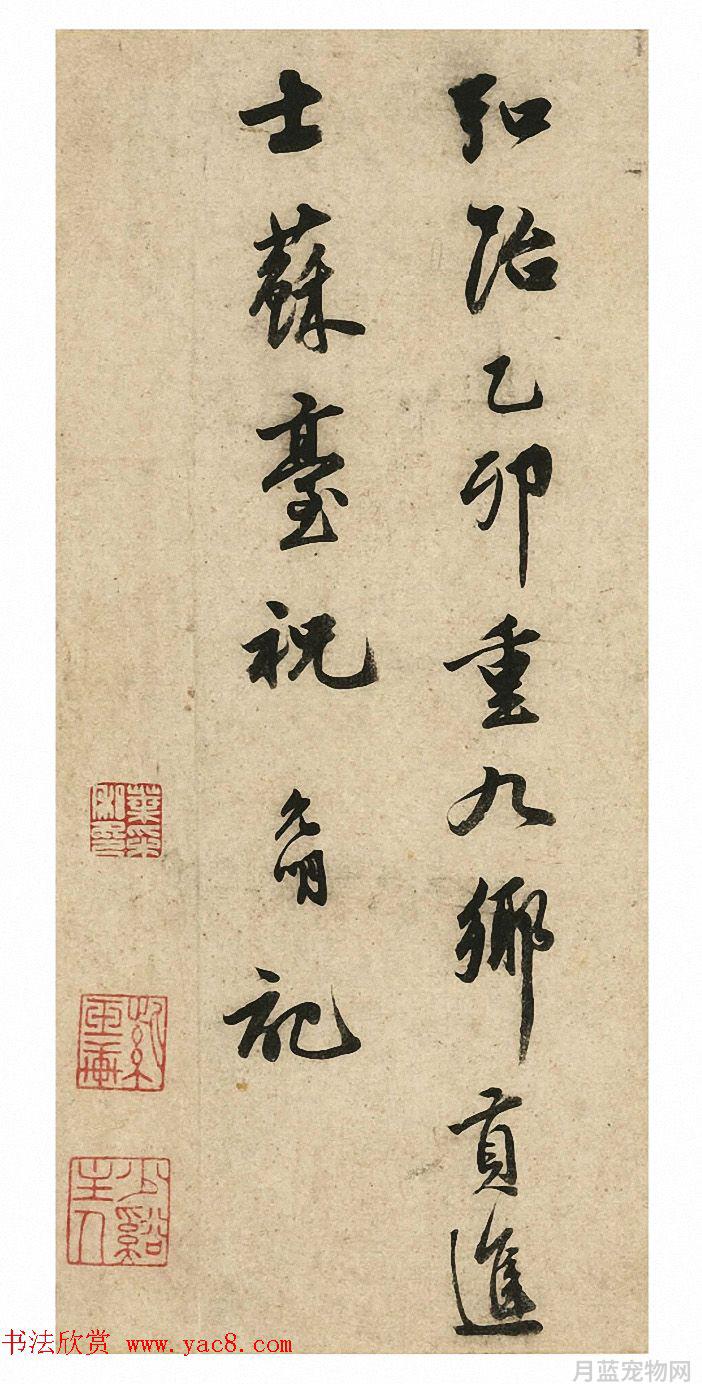 弘治乙卯重九鄉貢進
士蘇臺祝允明記
少谿主人
书法欣赏 www.yac8.com
月蓝宠物网